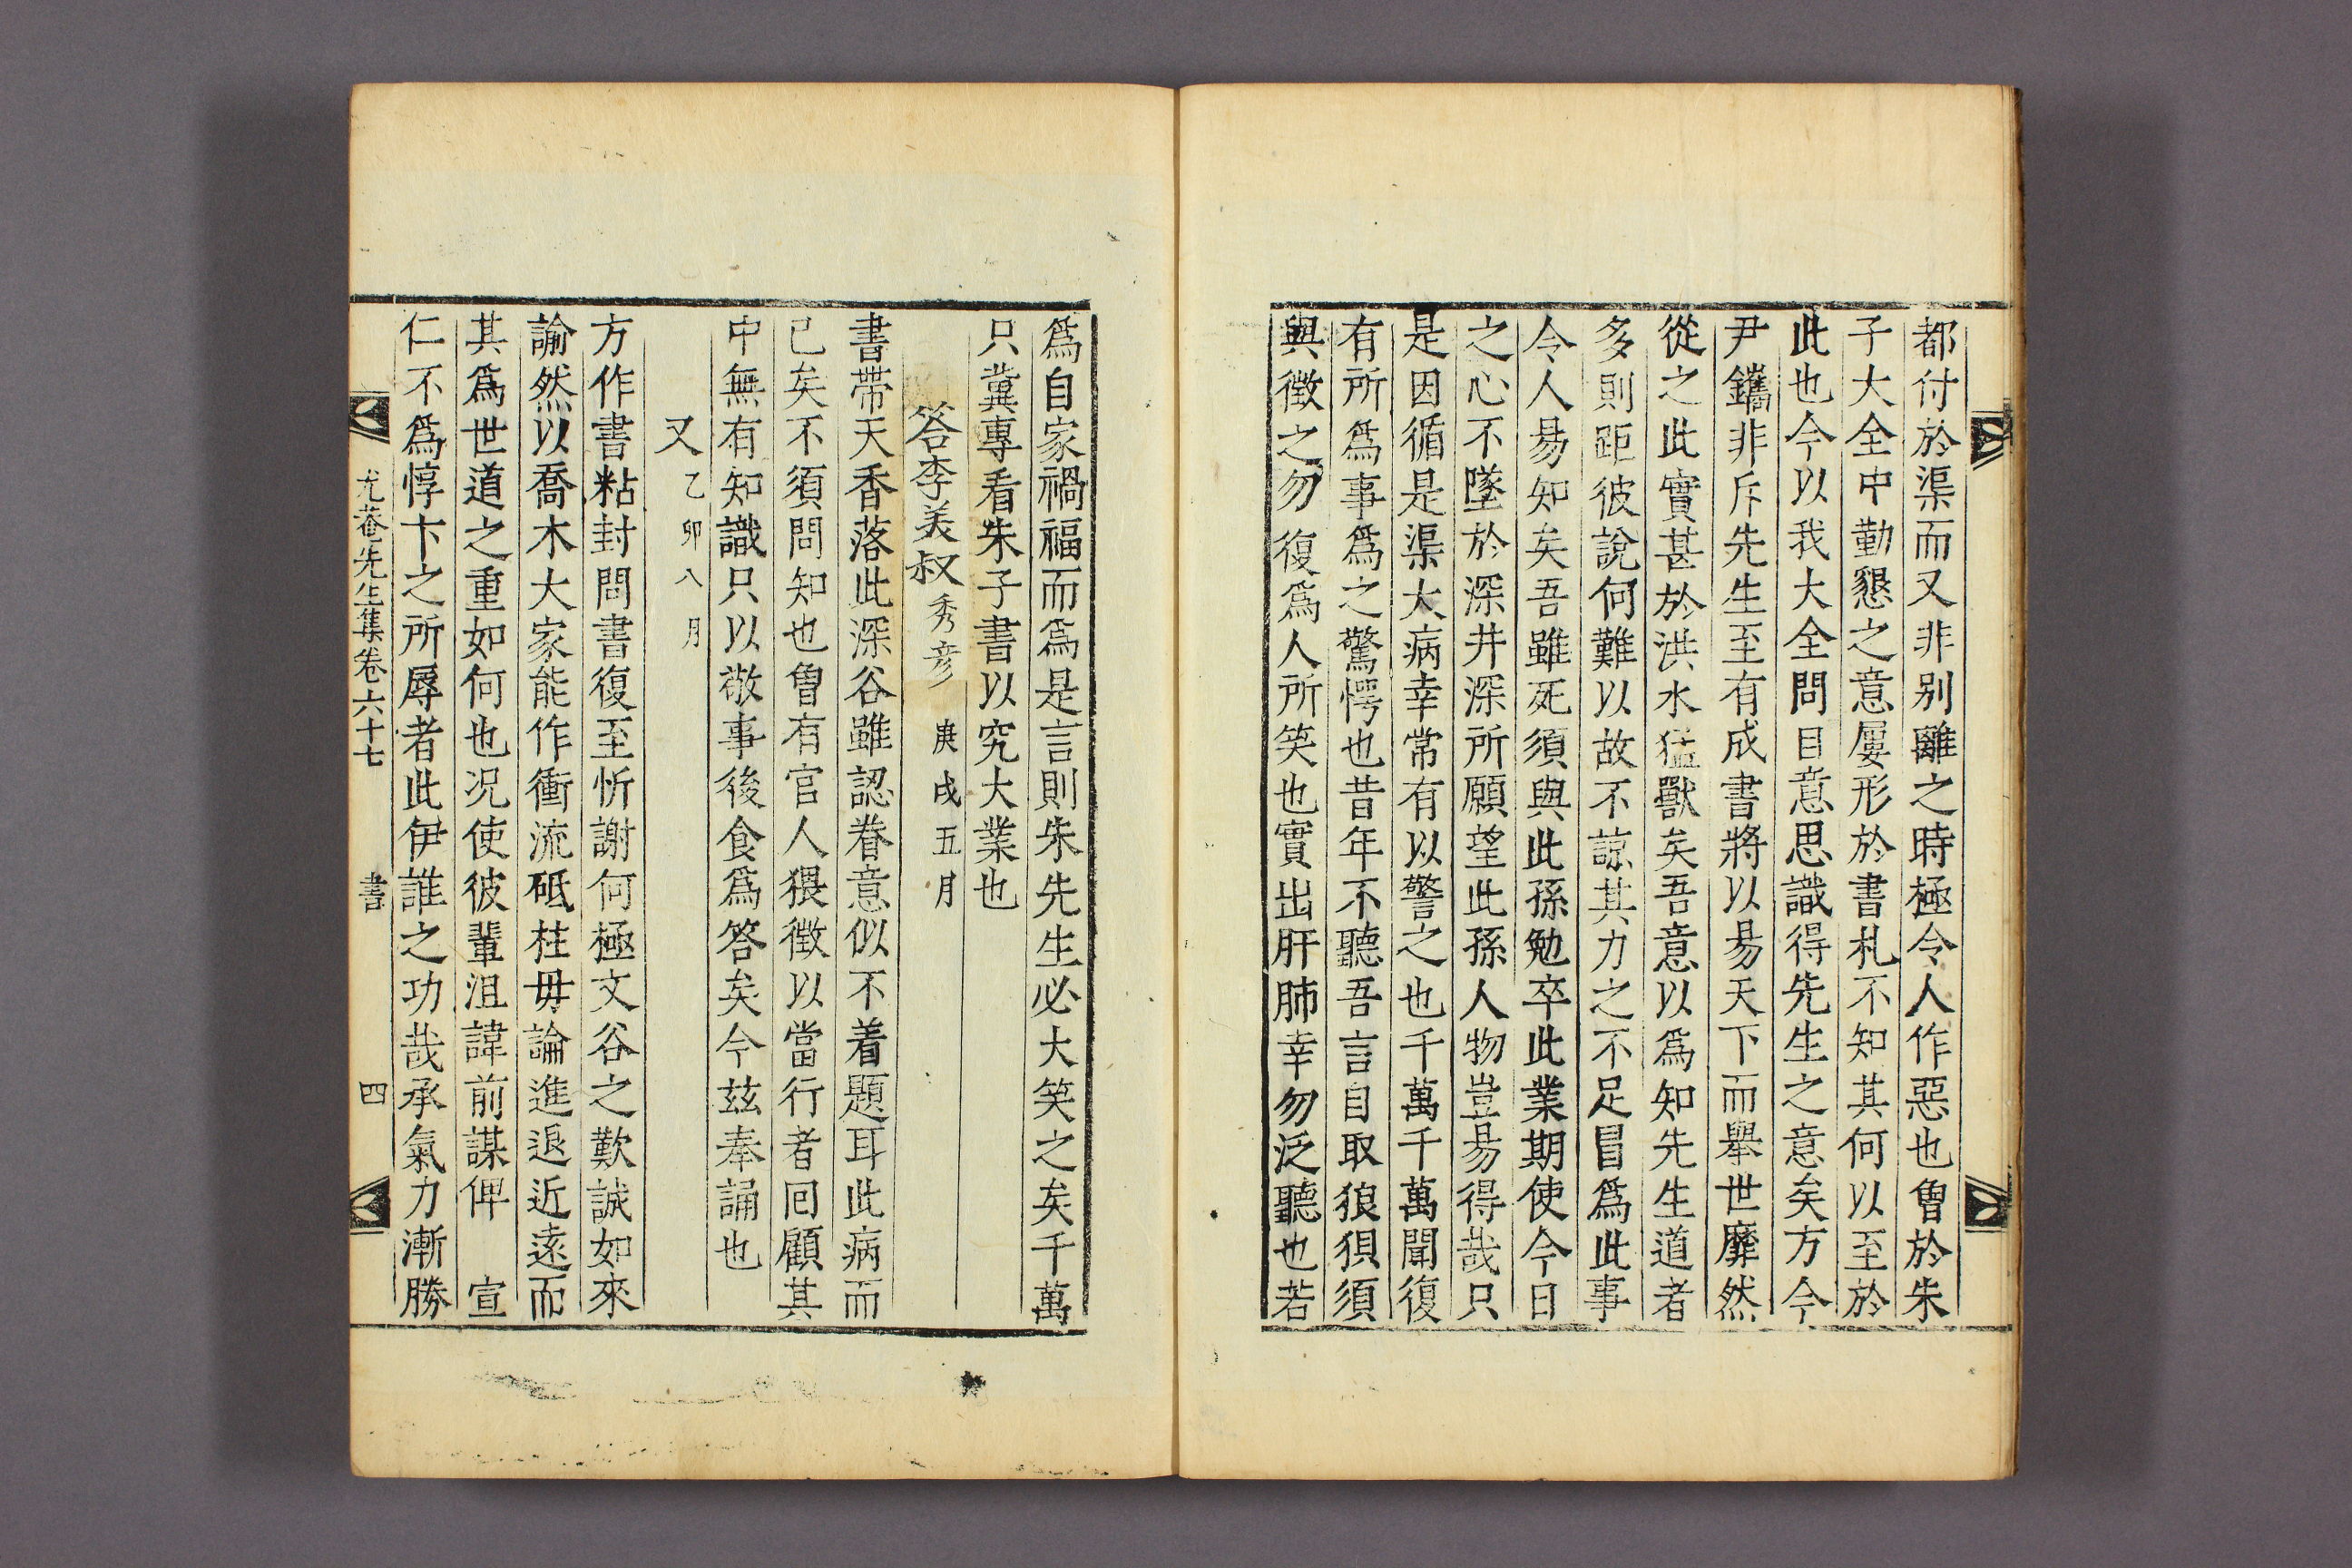 都付於渠而又非別離之時極令人作惡也曾於朱
子大全中勤懇之意屢形於書札不知其何以至於
此也今以我大全問目意思識得先生之意矣方今
尹鑴非斥先生至有成書將以易天下而舉世靡然
從之此實甚於洪水猛獸矣吾意以爲知先生道者
多則距彼說何難以故不諒其力之不足冒爲此事
令人易知矣吾雖死須與此孫勉卒此業期使今日
之心不墜於深井深所願望此孫人物豈易得哉只
是因循是渠大病幸常有以警之也千萬千萬聞復
有所爲事爲之驚愕也昔年不聽吾言自取狼狽須
與徵之勿復爲人所笑也實出肝肺幸勿泛聽也若
爲自家禍福而爲是言則朱先生必大笑之矣千萬
只冀專看朱子書以究大業也
答李美叔秀彦 庚戌五月
書帶天香落此深谷雖認眷意似不着題耳此病而
已矣不須問知也曾有官人猥徵以當行者回顧其
中無有知識只以敬事後食爲答矣今玆奉誦也
又乙卯八月
方作書粘封問書復至忻謝何極文谷之歎誠如來
諭然以喬木大家能作衝流砥柱毋論進退近遠而
其爲世道之重如何也况使彼輩沮諱前謀俾 宣
仁不爲惇卞之所辱者此伊誰之功哉承氣力漸勝
尤菴先生集卷六十七 書 四